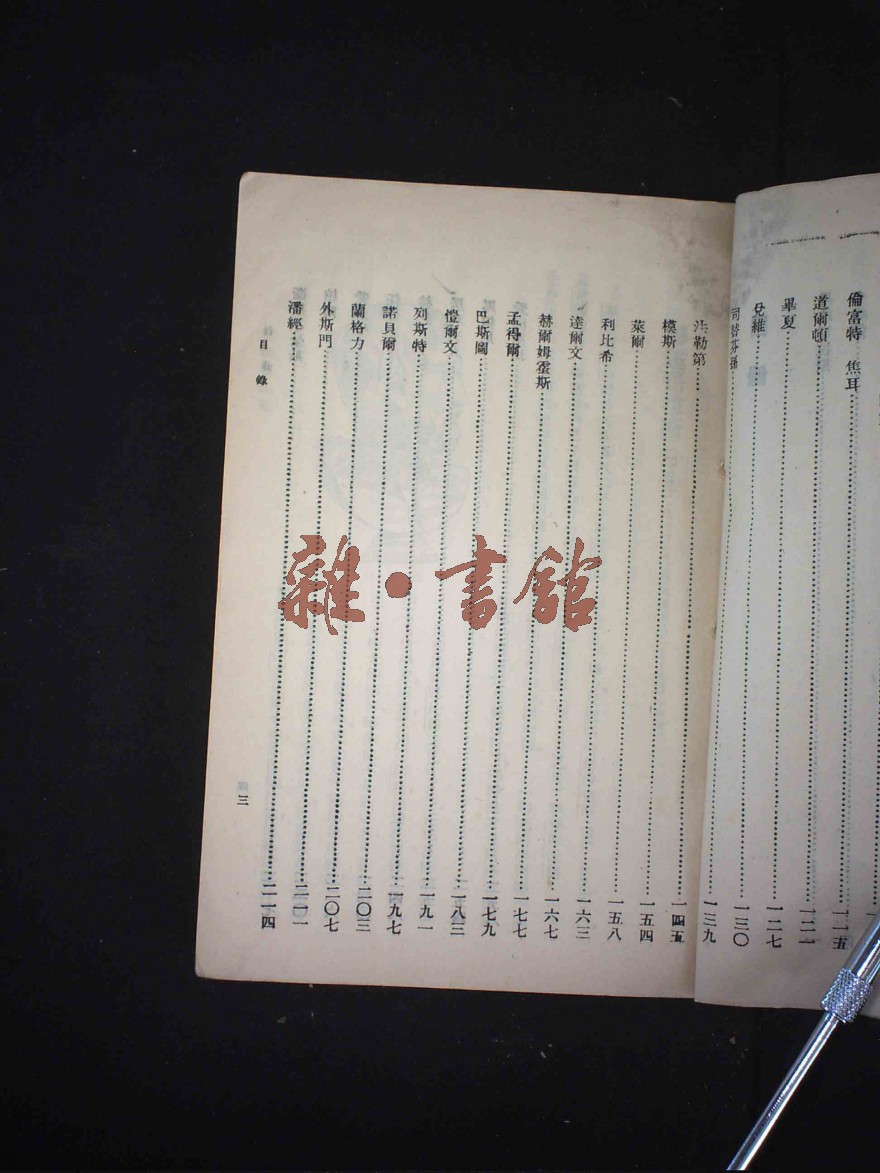 倫富特 焦耳……一一五
道爾頓……一二一
畢夏……一二七
兌維……一三〇
司替芬孫……一三九
法勒第……一四五
模斯……一五四
萊爾……一五八
利比希……一六三
達爾文……一六七
赫爾姆霍斯……一七七
孟得爾……一七九
巴斯圖……一八三
愷爾文……一九一
列斯特……一九七
諾貝爾……二〇三
蘭格力……二〇七
外斯門……二一一
潘經……二一四
目錄
三
雜·書館